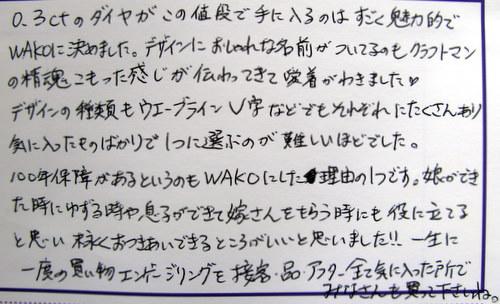 0.3ctのダイヤがこの値段で手に入るのはすごく魅力的で
WAKOに決めました。デザインにおしゃれな名前がついてるのもクラフトマン
の精魂こもった感じが伝わってきて愛着がわきました♡
デザインの種類もウエーブラインV字などでもそれぞれにたくさんあり
気に入ったものばかりで1つに選ぶのが難しいほどでした。
100年保障があるというのもWAKOにした理由の1つです。娘ができ
た時にゆずる時や息子ができて嫁さんをもらう時にも役に立てる
と思い末永くおつきあいできるところがいいと思いました!!一生に
一度の買い物エンゲージリングを接客・品・アフター全て気に入った所で
みなさんも買って下さいね。